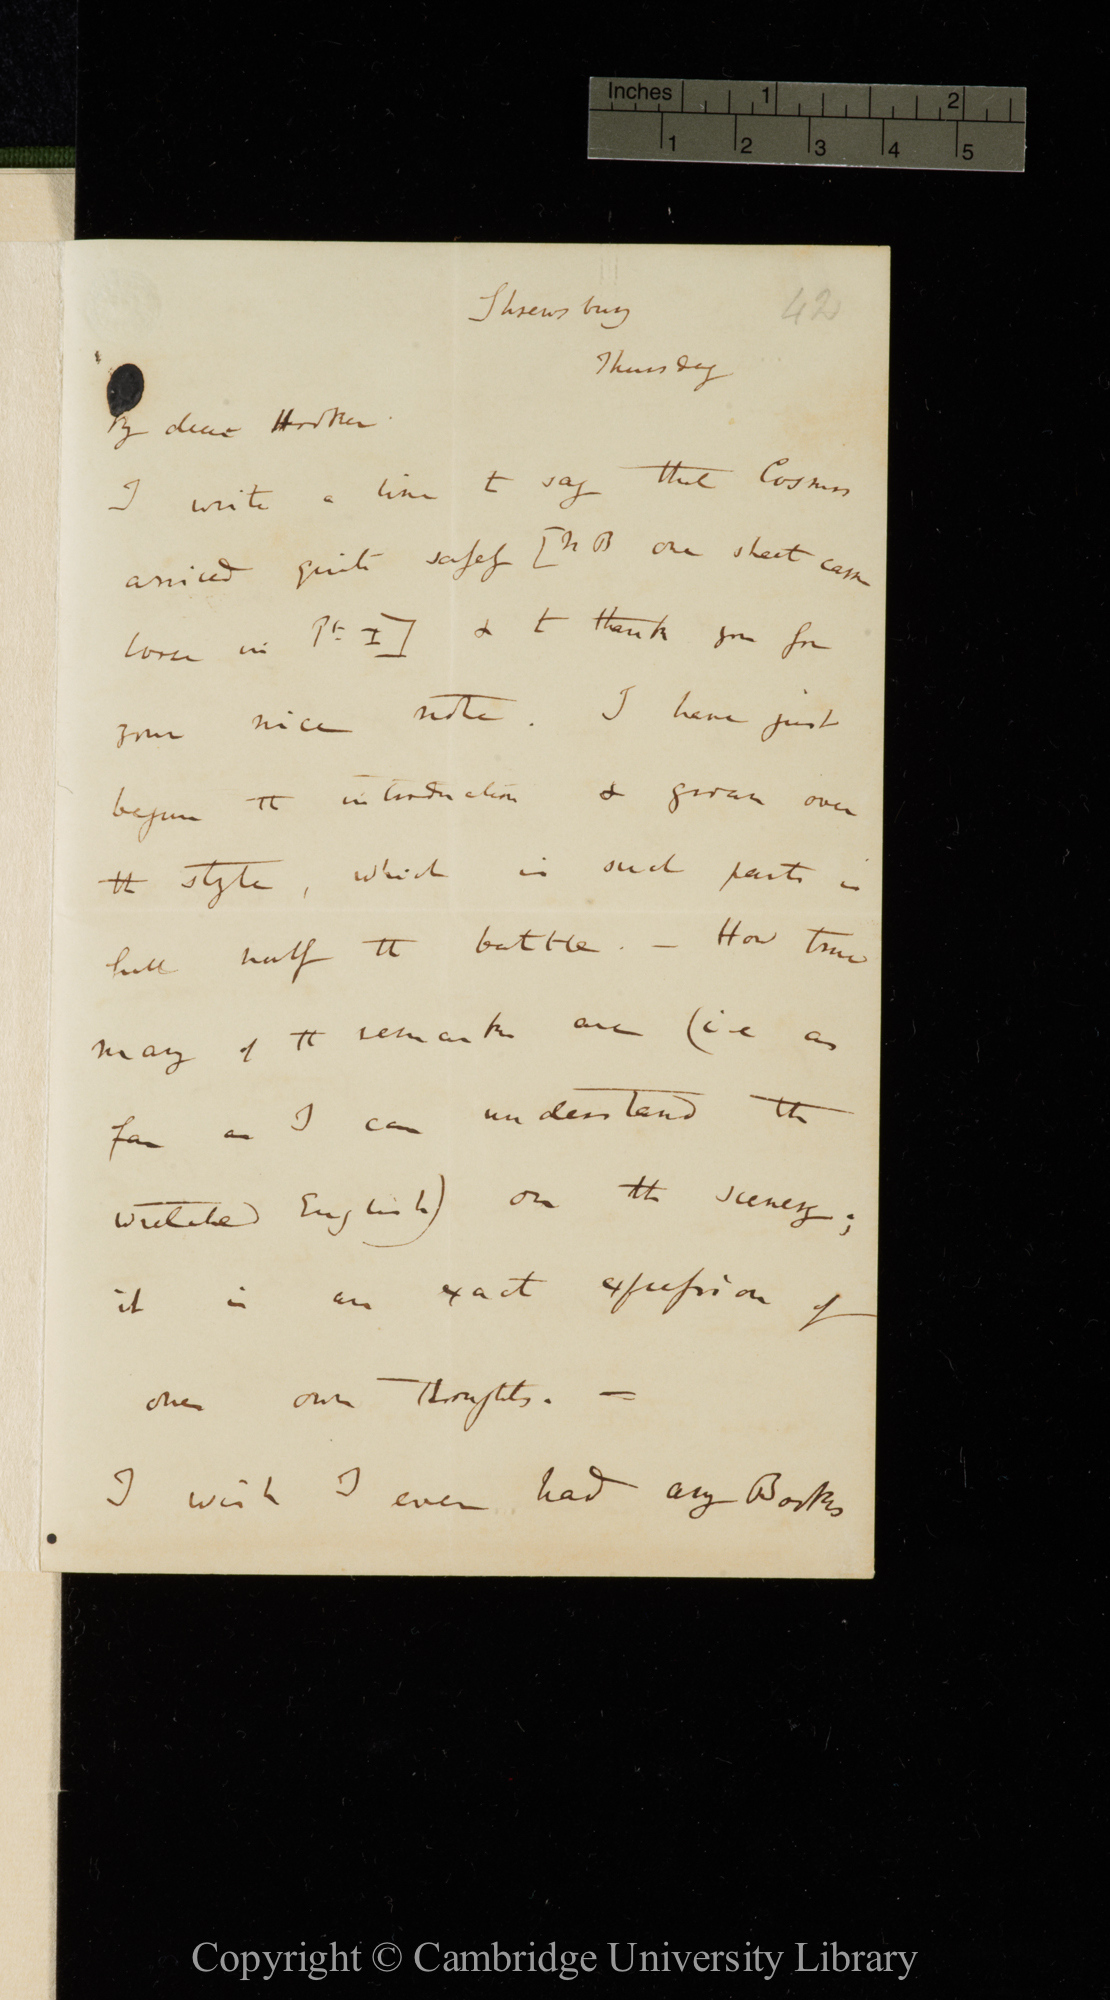 Inches 1 2
1 2 3 4 5
42
Shrewsbury
Thursday
My dear Hooker.
I write a line to say that Cosmos
arrived quite safely [NB one sheet came
loose in Pt. I] & to thank you for
your nice note. I have just
begun the introduction & groan over
the style, which in such parts is
full half the battle. — How true
many of the remarks are (i.e as
far as I can understand the
wretched English) on the scenery;
it is an exact expression of
ones own thoughts. —
I wish I ever had any Books
Copyright © Cambridge University Library